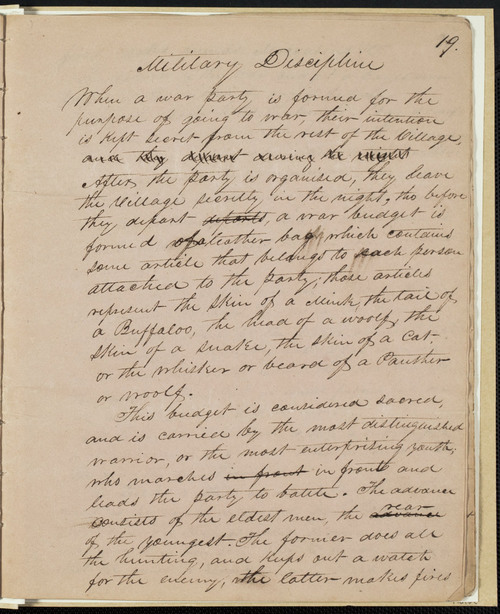 19.
Military Discipline
When a war party is formed for the
purpose of going to war, their intention
is kept secret from the rest of the Village,
and they depart during the night
After the party is organised, they leave
the Village secretly in the night, tho before
they depart, a war budget is
formed of a leather bag which contains
some article that belongs to each person
attached to the party; those articles
represent the skin of a Mink, the tail of
a Buffaloo, the head of a woolf, the
skin of a snake, the skin of a Cat.
or the whisker or beard of a Panther
or woolf.
This budget is considered sacred,
and is carried by the most distinguished
warrior, or the most enterprising youth,
who marches in front in front and
leads the party to battle. The advance
consists of the eldest men, the advance rear
of the youngest. The former does all
the hunting, and keeps out a watch
for the enemy, the latter makes fires